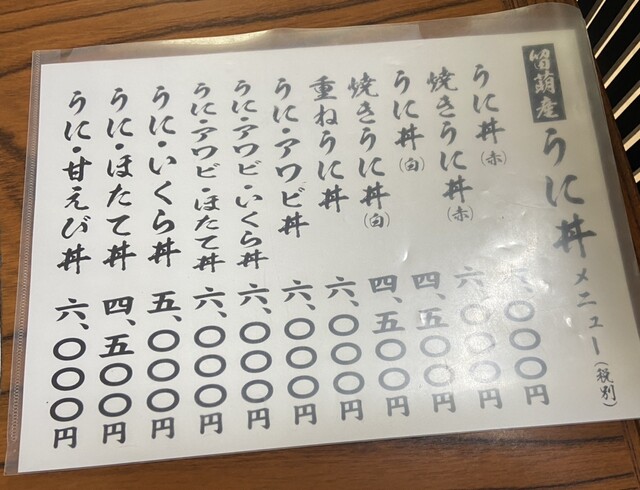 留萌産 うに丼メニュー(税別)
うに丼(赤) 六、〇〇〇円
焼きうに丼(赤) 六、〇〇〇円
うに丼(白) 四、五〇〇円
焼きうに丼(白) 四、五〇〇円
重ねうに丼 六、〇〇〇円
うに・アワビ丼 六、〇〇〇円
うに・アワビ・いくら丼 六、〇〇〇円
うに・アワビ・ほたて丼 六、〇〇〇円
うに・いくら丼 五、〇〇〇円
うに・ほたて丼 四、五〇〇円
うに・甘えび丼 六、〇〇〇円